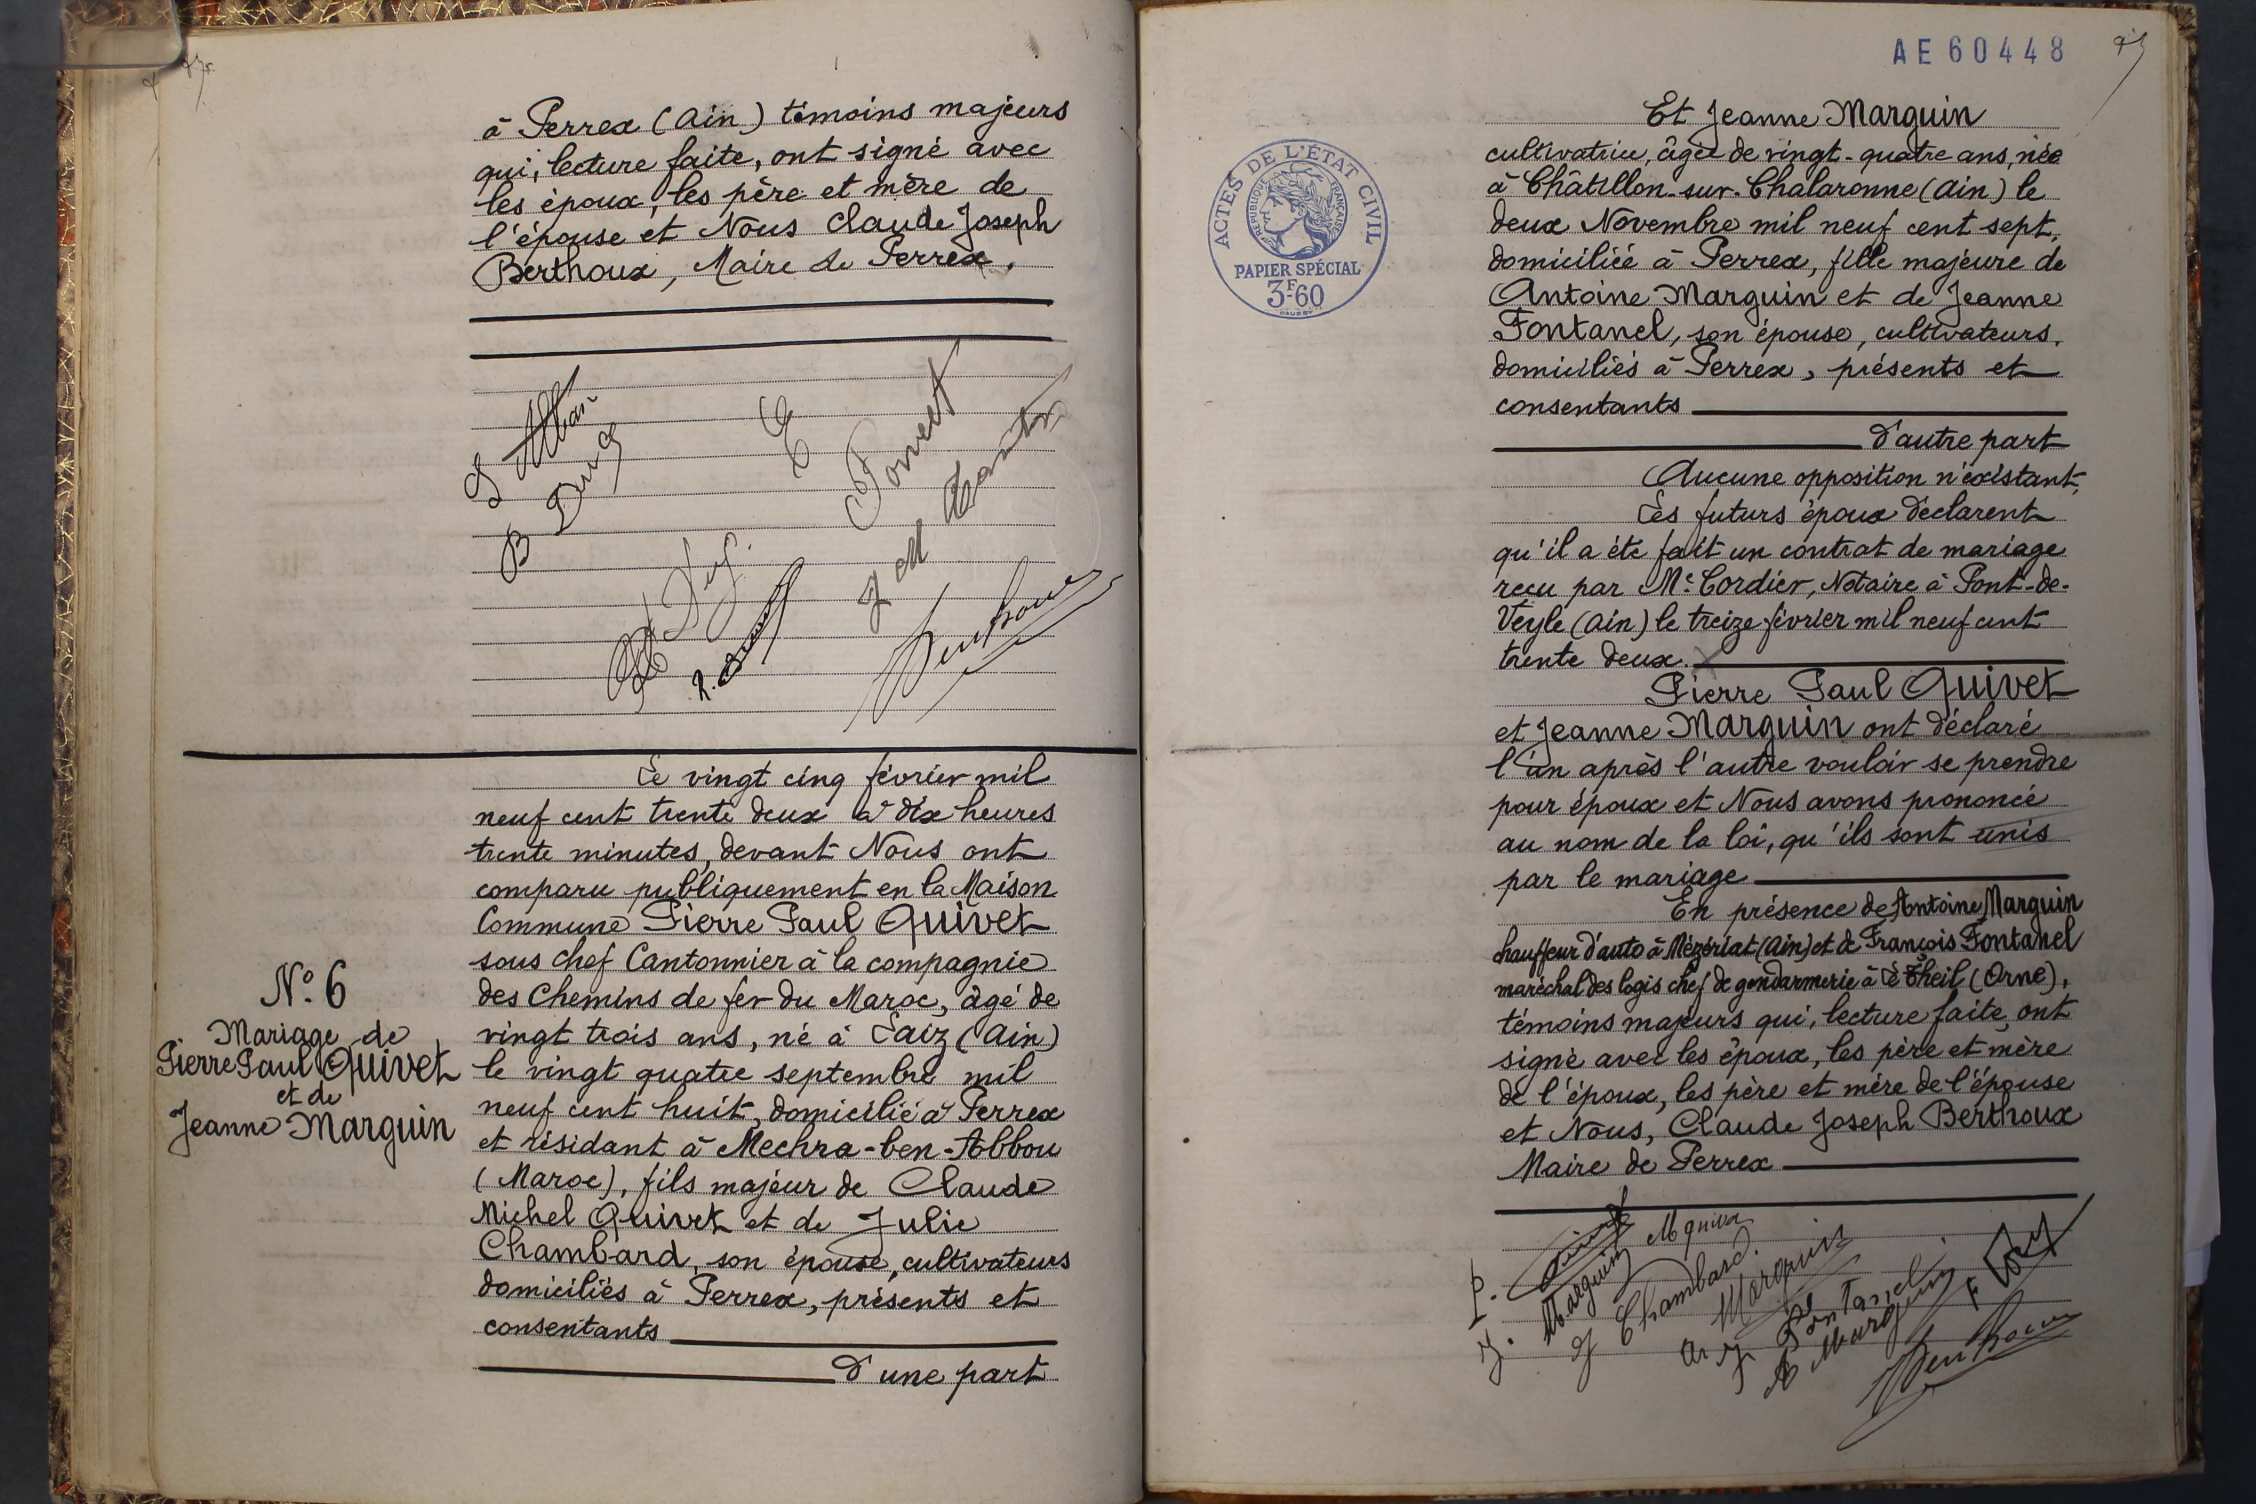 à Perrex (Ain) témoins majeurs
qui, lecture faite, ont signé avec
les époux, les père et mère de
l'épouse et Nous Claude Joseph
Berthoux, Maire de Perrex.
Le vingt cinq février mil
neuf cent trente deux à dix heures
trente minutes, devant Nous ont
comparu publiquement en la Maison
Commune Pierre Paul Quivet
sous chef Cantonnier à la compagnie
des Chemins de fer du Maroc, âgé de
vingt trois ans, né à Laiz (Ain)
le vingt quatre septembre mil
neuf cent huit, domicilié à Perrex
et résidant à Mechra-ben-Abbou
(Maroc), fils majeur de Claude
Michel Quivet et de Julie
Chambard, son épouse, cultivateurs
domiciliés à Perrex, présents et
consentants
d'une part
N° 6
Mariage de
Pierre Paul Quivet
et de
Jeanne Marguin
AE 60448
ACTES DE L'ÉTAT CIVIL
RÉPUBLIQUE FRANÇAISE
PAPIER SPÉCIAL
3F60
Et Jeanne Marguin
cultivatrice, âgée de vingt-quatre ans, née
à Châtillon-sur-Chalaronne (Ain) le
deux Novembre mil neuf cent sept,
domiciliée à Perrex, fille majeure de
Antoine Marguin et de Jeanne
Fontanel, son épouse, cultivateurs,
domiciliés à Perrex, présents et
consentants
d'autre part
Aucune opposition n'existant,
Les futurs époux déclarent
qu'il a été fait un contrat de mariage
reçu par Me Cordier, Notaire à Pont-de-
Veyle (Ain) le treize février mil neuf cent
trente deux.
Pierre Paul Quivet
et Jeanne Marguin ont déclaré
l'un après l'autre vouloir se prendre
pour époux et Nous avons prononcé
au nom de la loi, qu'ils sont unis
par le mariage
En présence de Antoine Marguin
chauffeur d'auto à Mézériat (Ain) et de François Fontanel
maréchal des logis chef de gendarmerie à Le Theil (Orne),
témoins majeurs qui, lecture faite, ont
signé avec les époux, les père et mère
de l'époux, les père et mère de l'épouse
et Nous, Claude Joseph Berthoux
Maire de Perrex
P. Quivet M Quivet
J. Marguin
J Chambard
Marguin
J Fontanel
A Marguin
Berthoux